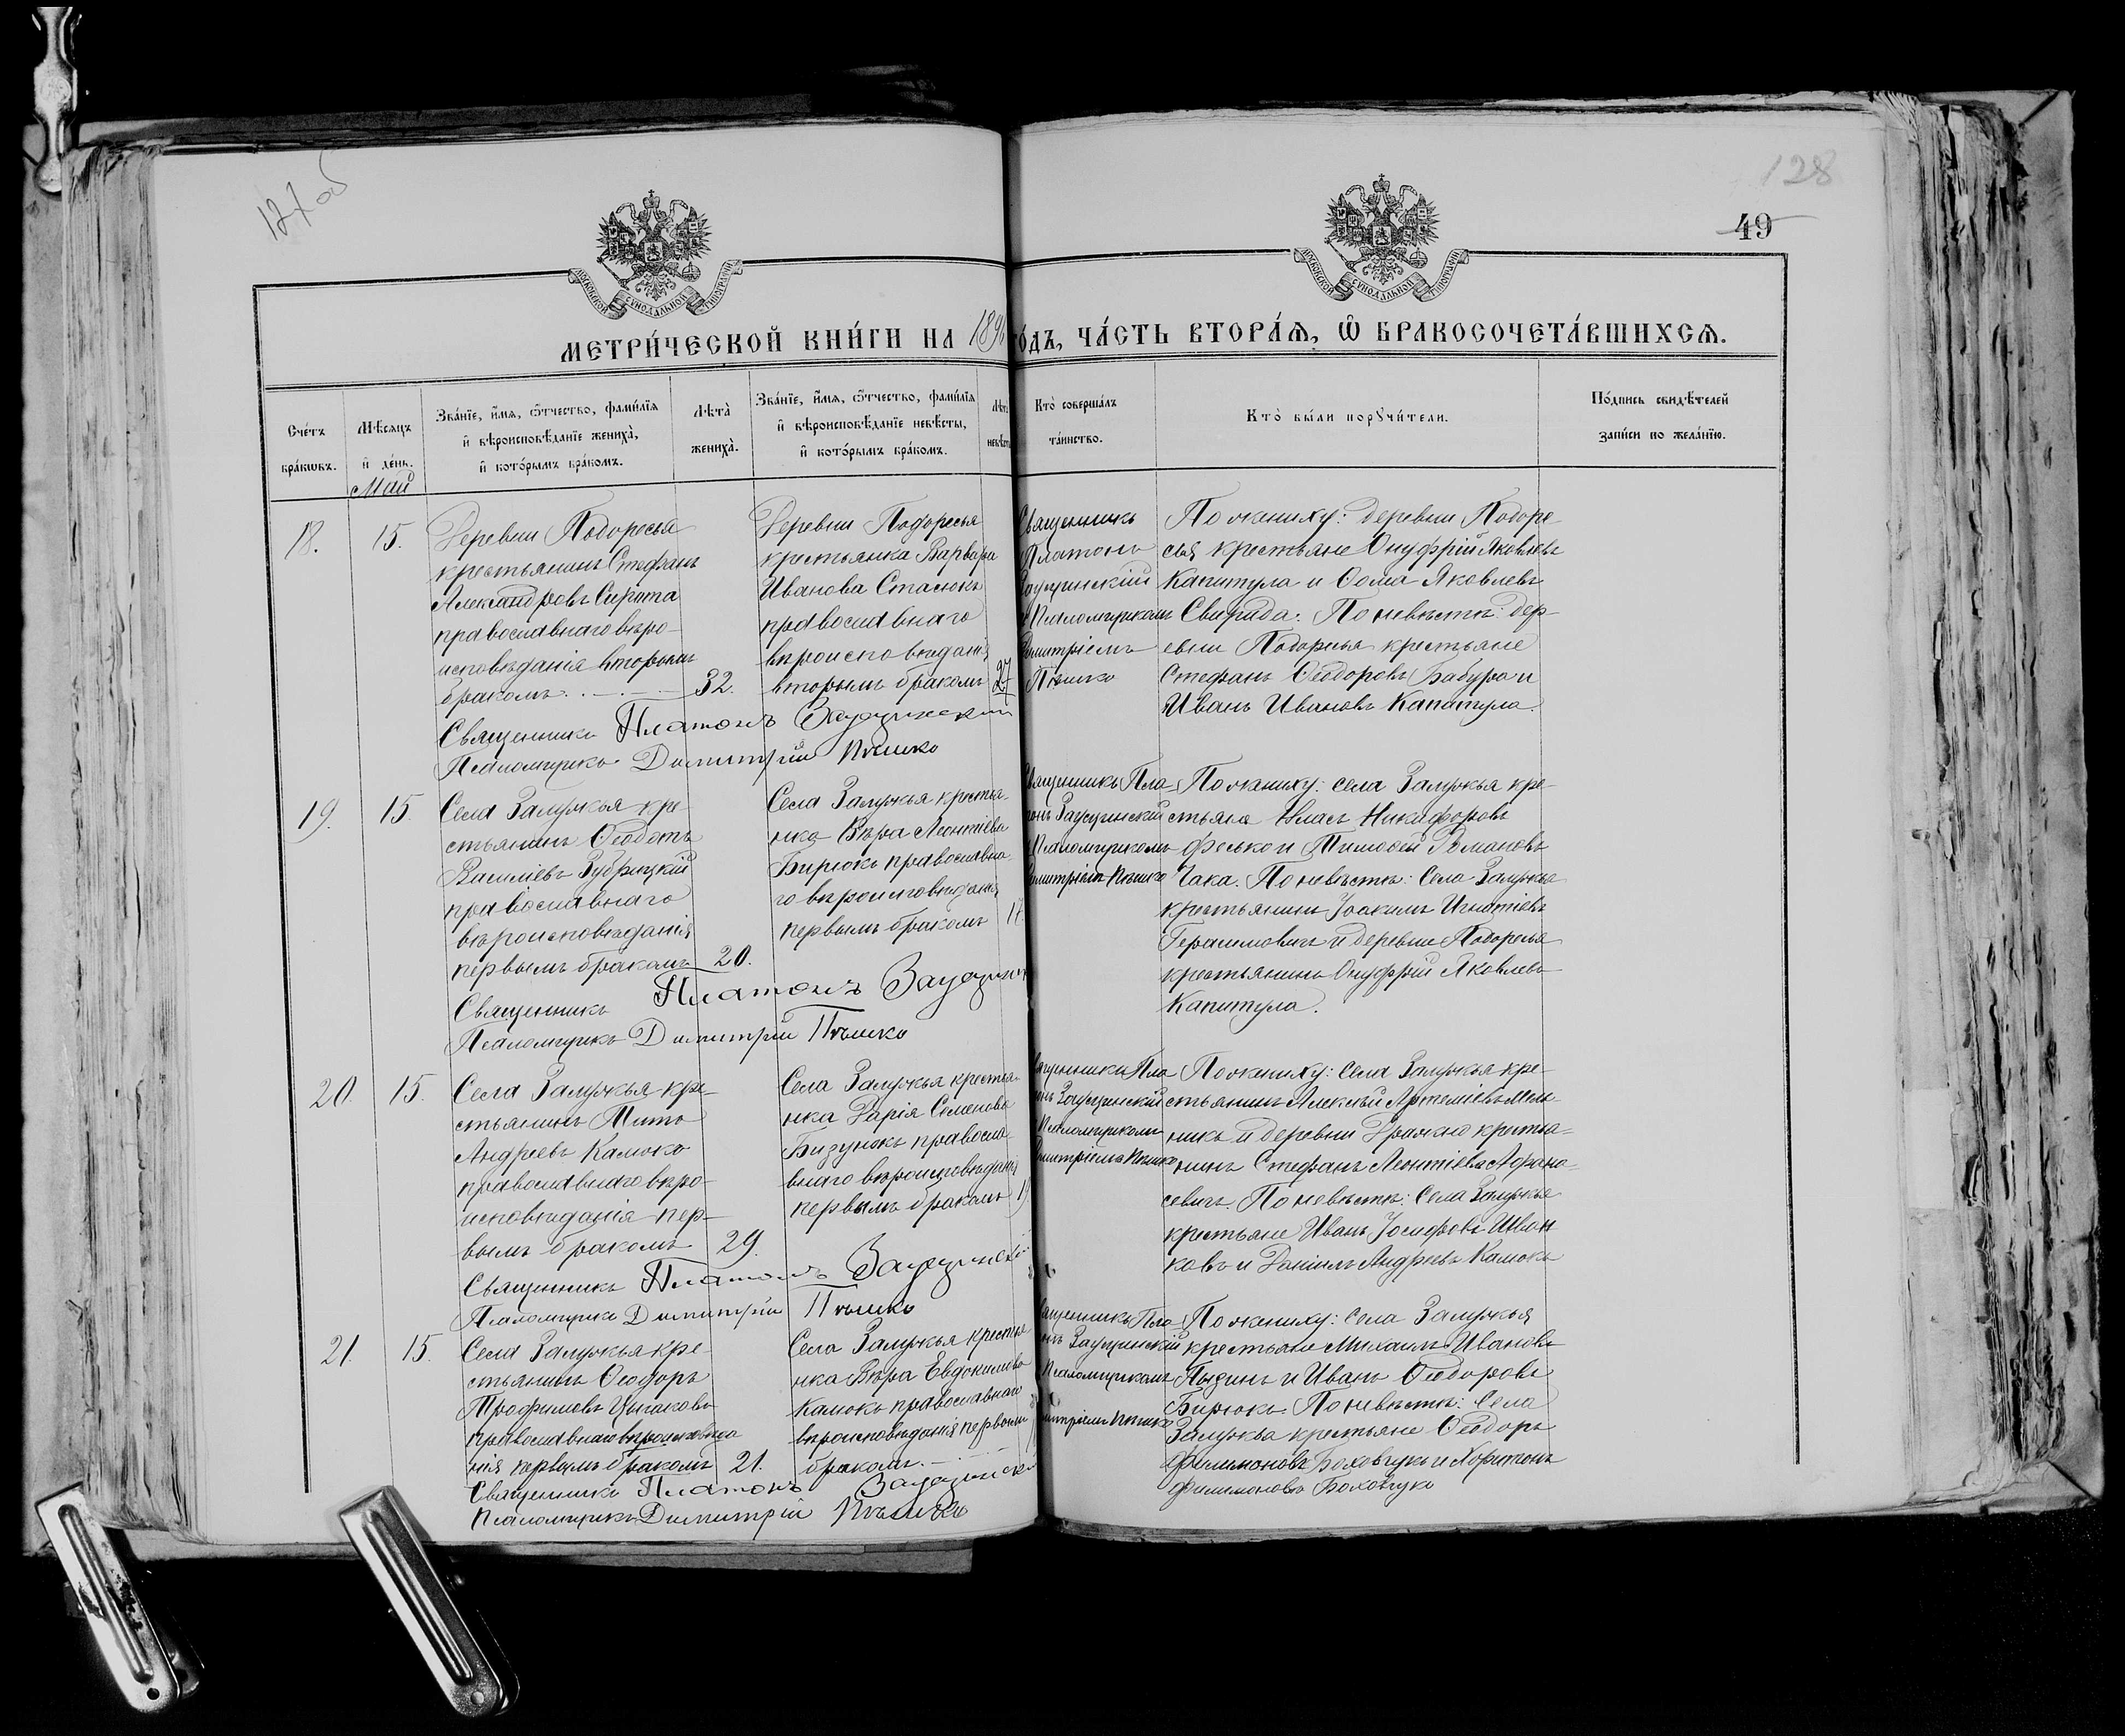 127 об
128
49
МОСКОВСКОЙ СѴНОДАЛЬНОЙ ТИПОГРАФІИ
МОСКОВСКОЙ СѴНОДАЛЬНОЙ ТИПОГРАФІИ
МЕТРИ́ЧЕСКОЙ КНИ́ГИ НА 189 го́дъ, ЧА́СТЬ ВТОРА́Я, Ѽ БРАКОСОЧЕТА́ВШИХСЯ.
Сче́тъ бра́кѡвъ.
Мѣ́сяцъ и҆ де́нь.
Зва́нїе, и҆́мя, ѻ҆́тчество, фами́лїя и҆ вѣроисповѣ́данїе жениха̀, и҆ кото́рымъ бра́комъ.
Лѣта̀ жениха̀.
Зва́нїе, и҆́мя, ѻ҆́тчество, фами́лїя и҆ вѣроисповѣ́данїе невѣ́сты, и҆ кото́рымъ бра́комъ.
Лѣта̀
Кто̀ соверша́лъ та́инство.
Кто̀ бы́ли порꙋчи́тели.
По́дпись свидѣ́телей за́писи по жела́нїю.
Май
18.
15.
Деревни Подоресья
крестьянинъ Стефанъ
Александровъ Сирота
православнаго вѣро-
исповѣданія вторымъ
бракомъ
32.
Деревни Подоресья
крестьянка Варвара
Иванова Стасюкъ
православнаго
вѣроисповѣданія
вторымъ бракомъ
27
Священникъ
Платонъ
Заусцинскій
Псаломщикомъ
Димитріемъ
Пѣшко
По жениху: деревни Подоре-
сья крестьяне Онуфрій Яковлевъ
Капитула и Ѳома Яковлевъ
Свирида. По невѣстѣ: дер-
евни Подоресья крестьяне
Стефанъ Ѳеодоровъ Бабура и
Иванъ Ивановъ Капитула.
Священникъ Платонъ Заусцинскій
Псаломщикъ Димитрій Пѣшко
19.
15.
Села Залужья кре-
стьянинъ Ѳеодотъ
Василіевъ Зубрицкій
православнаго
вѣроисповѣданія
первымъ бракомъ
20.
Села Залужья крестья-
нка Вѣра Леонтіева
Бирюкъ православна-
го вѣроисповѣданія
первымъ бракомъ
17.
Священникъ Пла-
тонъ Заусцинскій
Псаломщикомъ
Димитріемъ Пѣшко
По жениху: села Залужья кре-
стьяне Власъ Никифоровъ
Фесько и Тимоѳей Романовъ
Чака. По невѣстѣ: Села Залужья
крестьянинъ Іоакимъ Игнатіевъ
Герасимовичъ и деревни Подоресья
крестьянинъ Онуфрій Яковлевъ
Капитула.
Священникъ Платонъ Заусцинск
Псаломщикъ Димитрій Пѣшко
20.
15.
Села Залужья кре-
стьянинъ Титъ
Андреевъ Камоко
православнаго вѣро-
исповѣданія пер-
вымъ бракомъ
29.
Села Залужья крестья-
нка Дарія Семенова
Бизунокъ правосла-
внаго вѣроисповѣданія
первымъ бракомъ
19
Священникъ Пла-
тонъ Заусцинскій
Псаломщикомъ
Димитріемъ Пѣшко
По жениху: Села Залужья кре-
стьянинъ Алексѣй Артеміевъ Мель-
никъ и деревни Дражно крестья-
нинъ Стефанъ Леонтіевъ Афана-
севичъ. По невѣстѣ: Села Залужья
крестьяне Иванъ Іосифовъ Иван-
ковъ и Даніилъ Андреевъ Камокъ
Священникъ Платонъ Заусцинскій
Псаломщикъ Димитрій Пѣшко
21.
15.
Села Залужья кре-
стьянинъ Ѳеодоръ
Трофимовъ Цыгаковъ
православнаго вѣроисповѣда
нія первымъ бракомъ
21.
Села Залужья крестья
нка Вѣра Евдокимова
Камокъ православнаго
вѣроисповѣданія первымъ
бракомъ.
Священникъ Пла-
тонъ Заусцинскій
Псаломщикомъ
Димитріемъ Пѣшко
По жениху: Села Залужья
крестьяне Михаилъ Ивановъ
Пызинъ и Иванъ Ѳеодоровъ
Бирюкъ. По невѣстѣ: Села
Залужья крестьяне Ѳеодоръ
Филимоновъ Боховчукъ и Харитонъ
Филимоновъ Боховчукъ
Священникъ Платонъ Заусцински
Псаломщикъ Димитрій Пѣшко